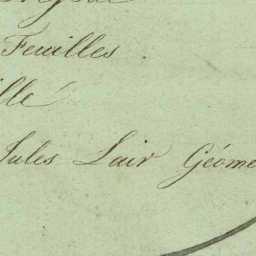 Feuilles.
Jules Lair Géome